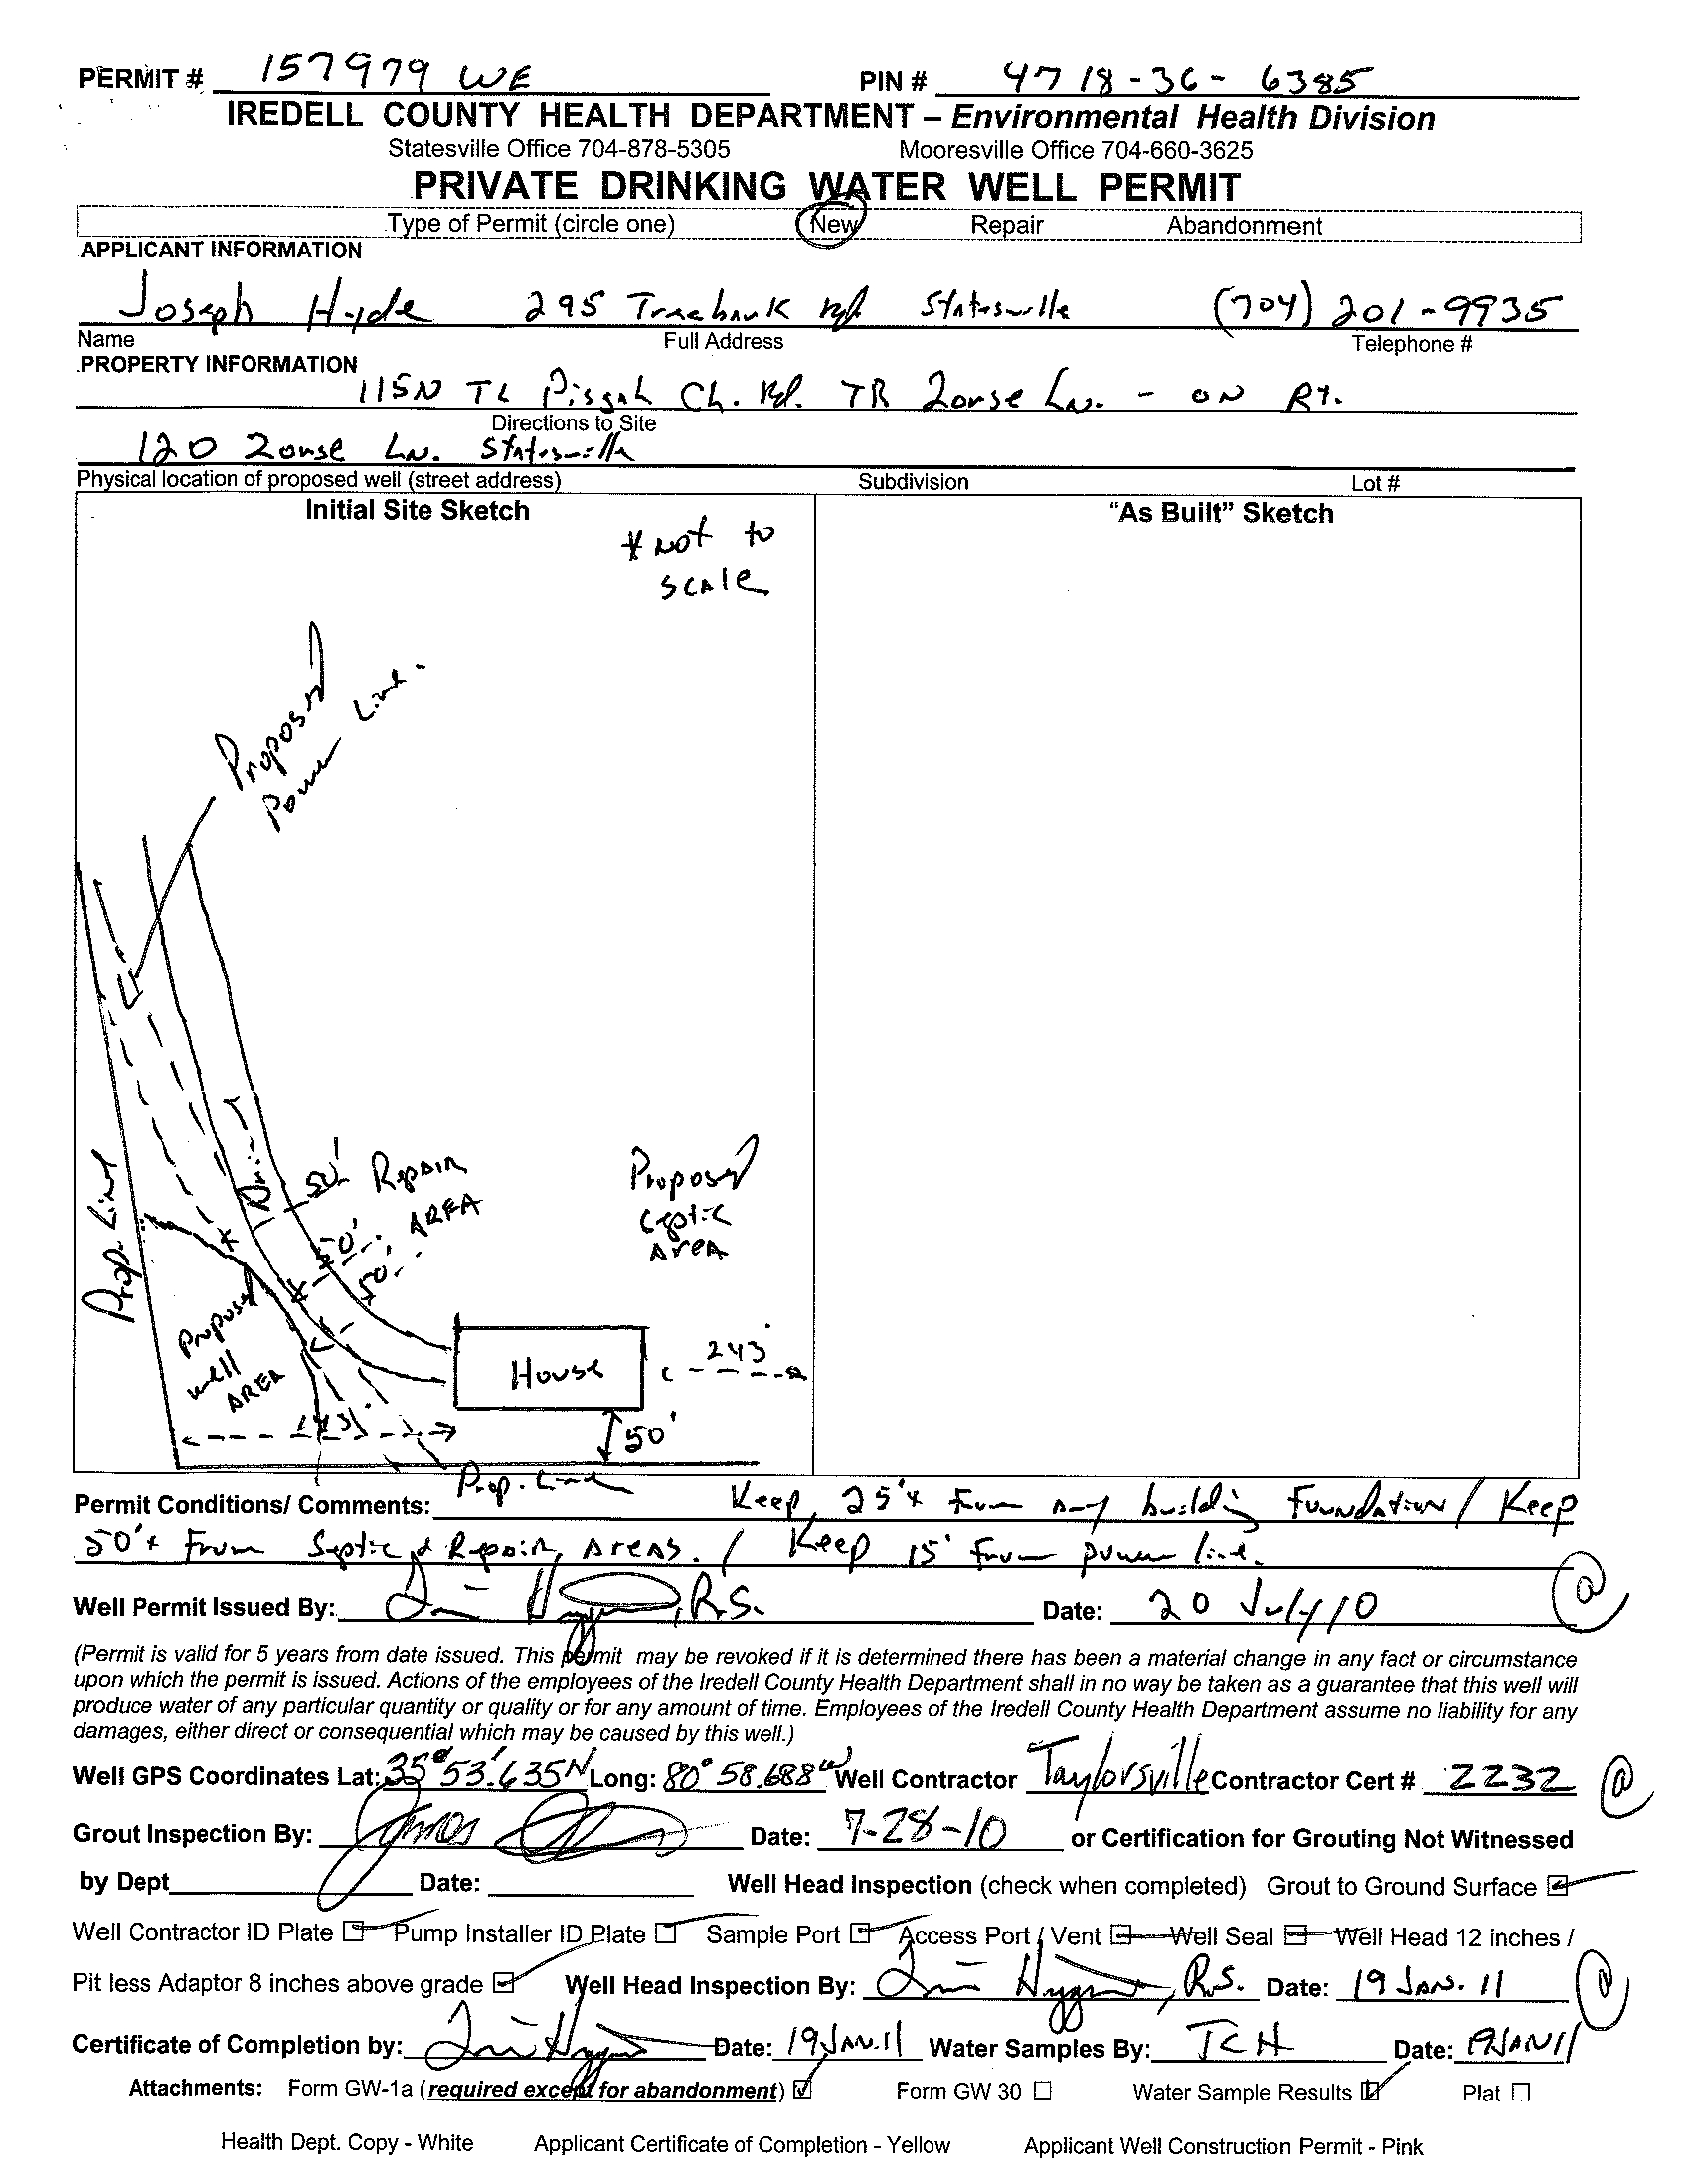 PERMIT # 157979 WE PIN # 4718-36-6385
IREDELL COUNTY HEALTH DEPARTMENT – Environmental Health Division
Statesville Office 704-878-5305 Mooresville Office 704-660-3625
PRIVATE DRINKING WATER WELL PERMIT
Type of Permit (circle one) New Repair Abandonment
APPLICANT INFORMATION
Joseph Hyde 295 Treebark Rd Statesville (704) 201-9935
Name Full Address Telephone #
PROPERTY INFORMATION
115N TL Pisgah Ch. Rd. TR Zouse Ln. - ON Rt.
Directions to Site
120 Zouse Ln. Statesville
Physical location of proposed well (street address) Subdivision Lot #
Initial Site Sketch "As Built" Sketch
* Not to
SCALE
Proposed
Power Line
Prop. Line
Drive
50' Repair
AREA
50'
50'
Proposed
Septic
AreA
Proposed
well
AREA
House
243'
143'
50'
Prop. Line
Permit Conditions/ Comments: Keep 25'+ From any building Foundation / Keep
50'+ From Septic & Repair Areas. / Keep 15' From power line.
Well Permit Issued By: R.S. Date: 20 July 10
(Permit is valid for 5 years from date issued. This permit may be revoked if it is determined there has been a material change in any fact or circumstance
upon which the permit is issued. Actions of the employees of the Iredell County Health Department shall in no way be taken as a guarantee that this well will
produce water of any particular quantity or quality or for any amount of time. Employees of the Iredell County Health Department assume no liability for any
damages, either direct or consequential which may be caused by this well.)
Well GPS Coordinates Lat: 35° 53.635 N Long: 80° 58.688 W Well Contractor Taylorsville Contractor Cert # 2232
Grout Inspection By: James Date: 7-28-10 or Certification for Grouting Not Witnessed
by Dept Date: Well Head Inspection (check when completed) Grout to Ground Surface
Well Contractor ID Plate Pump Installer ID Plate Sample Port Access Port / Vent Well Seal Well Head 12 inches /
Pit less Adaptor 8 inches above grade Well Head Inspection By: R.S. Date: 19 JAN. 11
Certificate of Completion by: Date: 19 JAN. 11 Water Samples By: TCH Date: 19 JAN 11
Attachments: Form GW-1a (required except for abandonment) Form GW 30 Water Sample Results Plat
Health Dept. Copy - White Applicant Certificate of Completion - Yellow Applicant Well Construction Permit - Pink